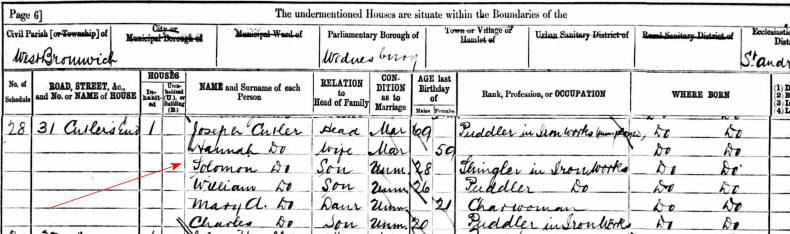 Page 6] The undermentioned Houses are situate within the Boundaries of the
Civil Parish [or Township] of City or Municipal Borough of Municipal Ward of Parliamentary Borough of Town or Village or Hamlet of Urban Sanitary District of Rural Sanitary District of Ecclesiastic Dist
West Bromwich Wednesbury St andr
No. of Schedule ROAD, STREET, &c., and No. or NAME of HOUSE HOUSES Inhabited Uninhabited (U.), or Building (B.) NAME and Surname of each Person RELATION to Head of Family CONDITION as to Marriage AGE last Birthday of Males Females Rank, Profession, or OCCUPATION WHERE BORN (1) D (2) B (3) I (4) L
28 31 Cutlers End 1 Joseph Cutler Head Mar 60 Puddler in Iron Works Do Do
Hannah Do Wife Mar 59 Do Do
Solomon Do Son Unm 28 Shingler in Iron Works Do Do
William Do Son Unm 26 Puddler Do Do Do
Mary A. Do Daur Unm 21 Charwoman Do Do
Charles Do Son Unm 20 Puddler in Iron Works Do Do